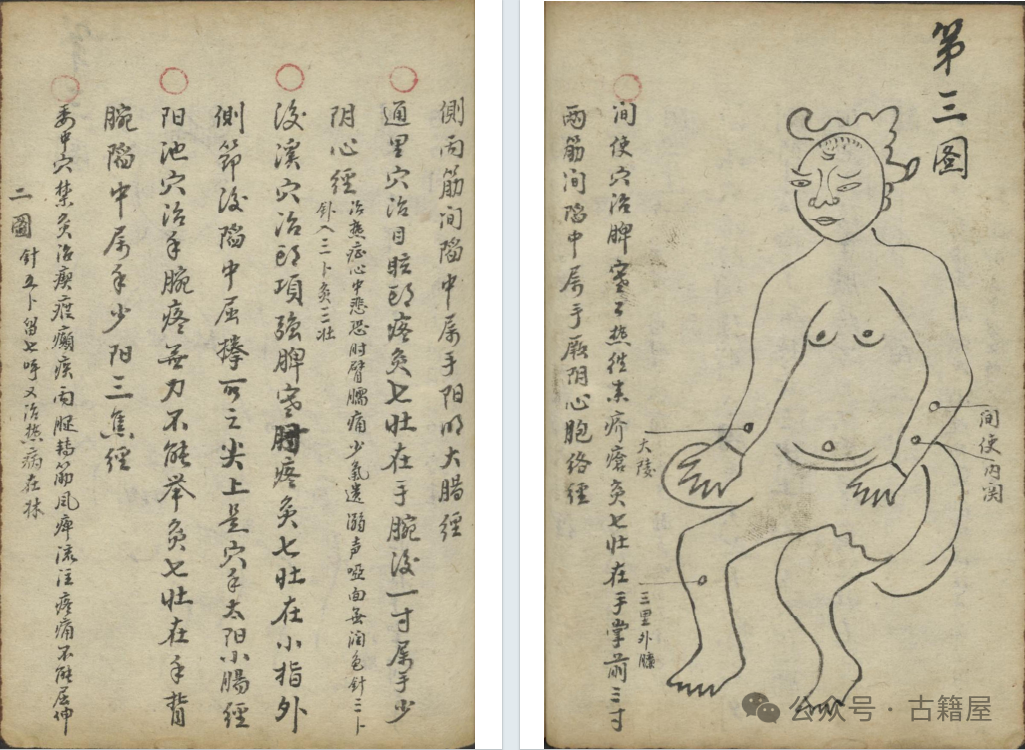 第三图
间使穴治脾寒之热徃来疥瘡灸七壮在手掌前三寸
两筋间陷中属手厥阴心胞络经
大陵
间使
内関
三里外臁
側両筋间陷中属手阳明大腸經
通里穴治目眩頭疼灸七壮在手腕後一寸属手少
阴心經
治热症心中悲恐肘臂臑痛少氣遗溺声啞面無润色針三卜
針入三卜灸三壮
後溪穴治頭項強脾寒肘疼灸七壮在小指外
側節後陷中屈拳可之尖上是穴手太阳小腸經
阳池穴治手腕疼無力不能举灸七壮在手背
腕陷中属手少阳三焦經
委中穴禁灸治瘈瘲癫疾両腿转筋风痺流注疼痛不能屈伸
二圖
針五卜留七呼又治热病在床
公众号·古籍屋